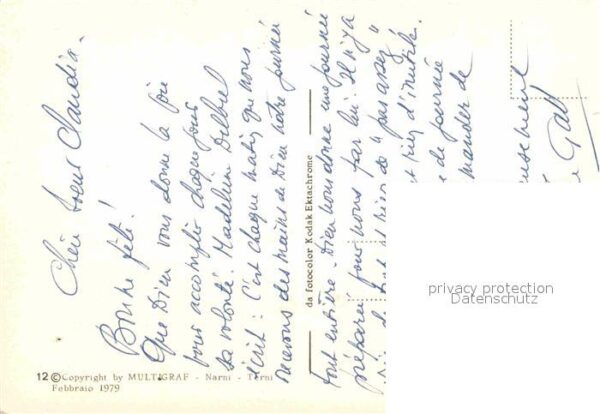 Chère Soeur Claudia -
Bonne fête!
Que Dieu vous donne la joie
pour accomplir chaque jour
sa volonté. Madeleine Delbrel
écrit: C'est chaque matin que nous
recevons des mains de Dieu notre journée
tout entière - Dieu nous donne une journée
préparée pour nous par lui. Il n'y a
de "pas assez"
rien d'inutile
de journée
mander de
da fotocolor Kodak Ektachrome
12 © Copyright by MULTIGRAF - Narni - Terni
Febbraio 1979
privacy protection
Datenschutz